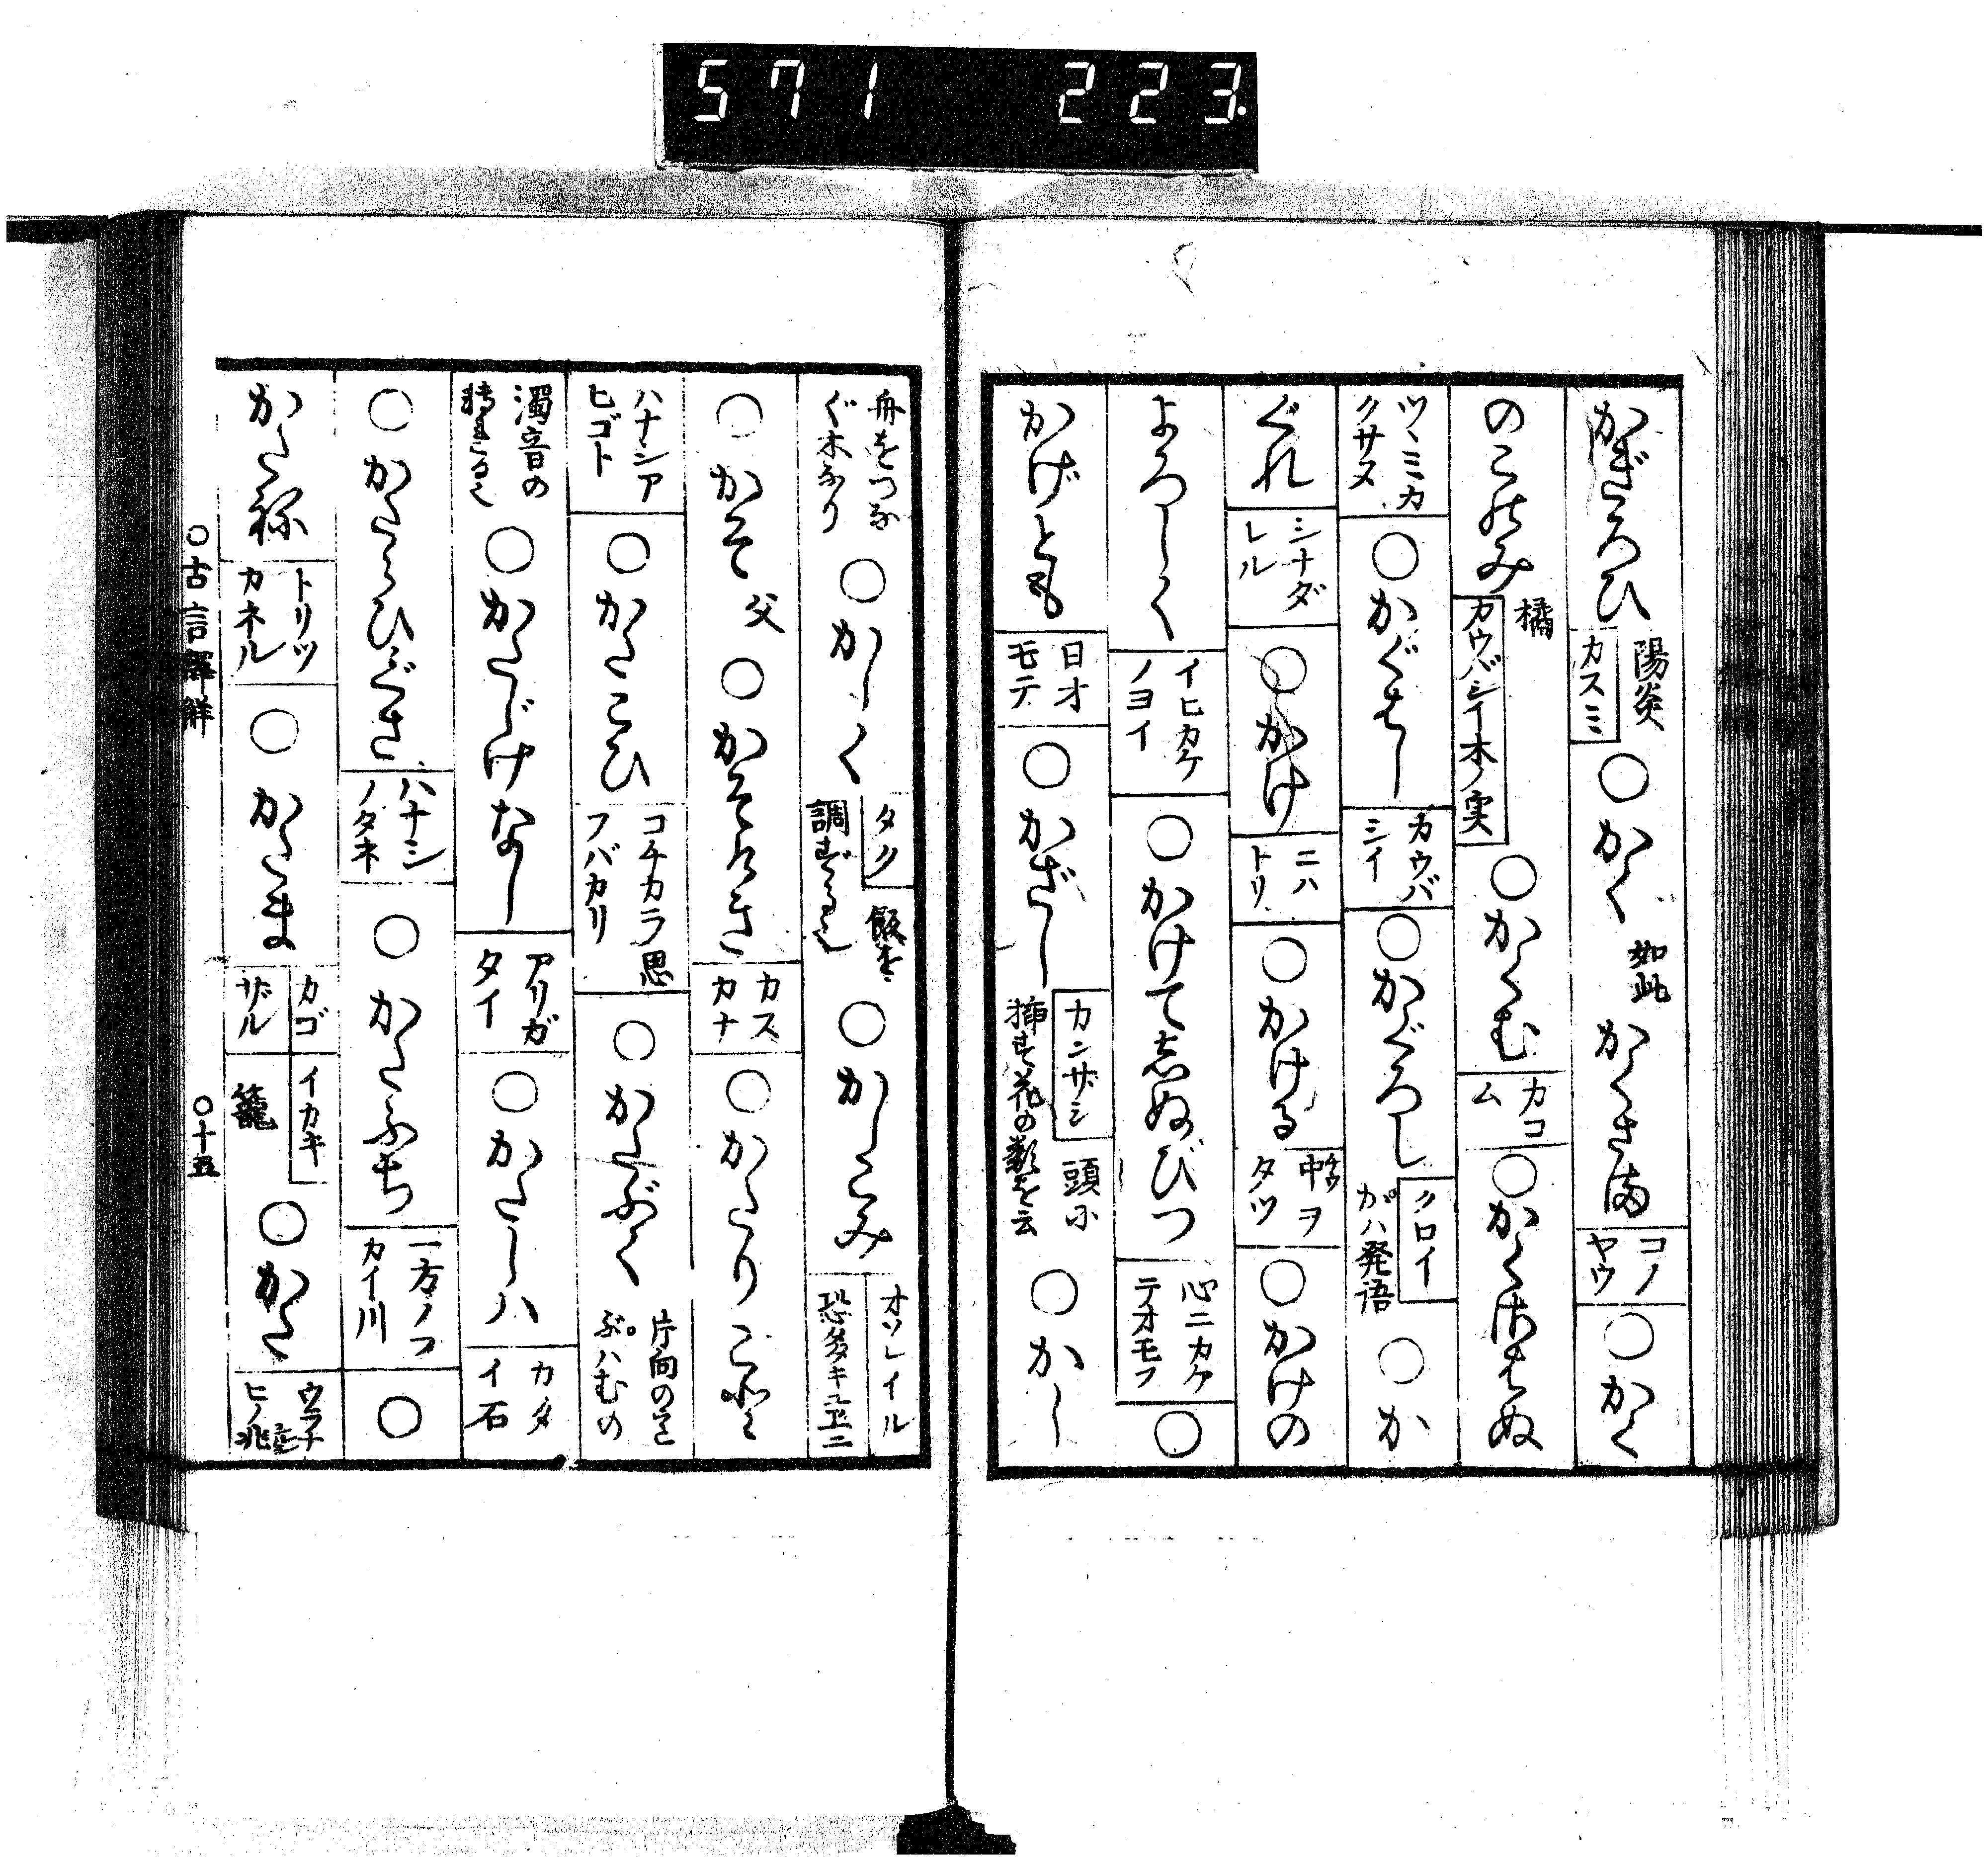 571 223.
かぎろひ 陽炎 カスミ ○かく 如此 かくさま コノヤウ ○かく
のこのみ 橘 カウバシイ木ノ実 ○かくむ カコム ○かくはもぬ
ツヽミカクサヌ ○かぐはし カウバシイ ○かぐろし クロイ がハ発語 ○か
ぐれ シナダレル ○かけ ニハトリ ○かける 中ヲタツ ○かけの
よろしく イヒカケノヨイ ○かけてしぬびつ 心ニカケテオモフ ○
かげとも 日オモテ ○かざし カンザシ 頭に挿す花の類を云 ○かし
舟をつなぐ木なり ○かしく タク 飯を調ずる也 ○かしこみ オソレイル 恐多キ
○かそ 父 ○かそけき カスカナ ○かたりこと
ハナシアヒゴト ○かたこひ コチカラ思フバカリ ○かたぶく 片向の ぶハむの
濁音の ○かたじけなし アリガタイ ○かたしハ カタイ石
○かたらひぐさ ハナシノタネ ○かたふち 一方ノフカイ川 ○
かたね トリツカネル ○かたま カゴ ザル イカキ 籠 ○かた ウラナヒノ兆
○古言譯解 ○十五